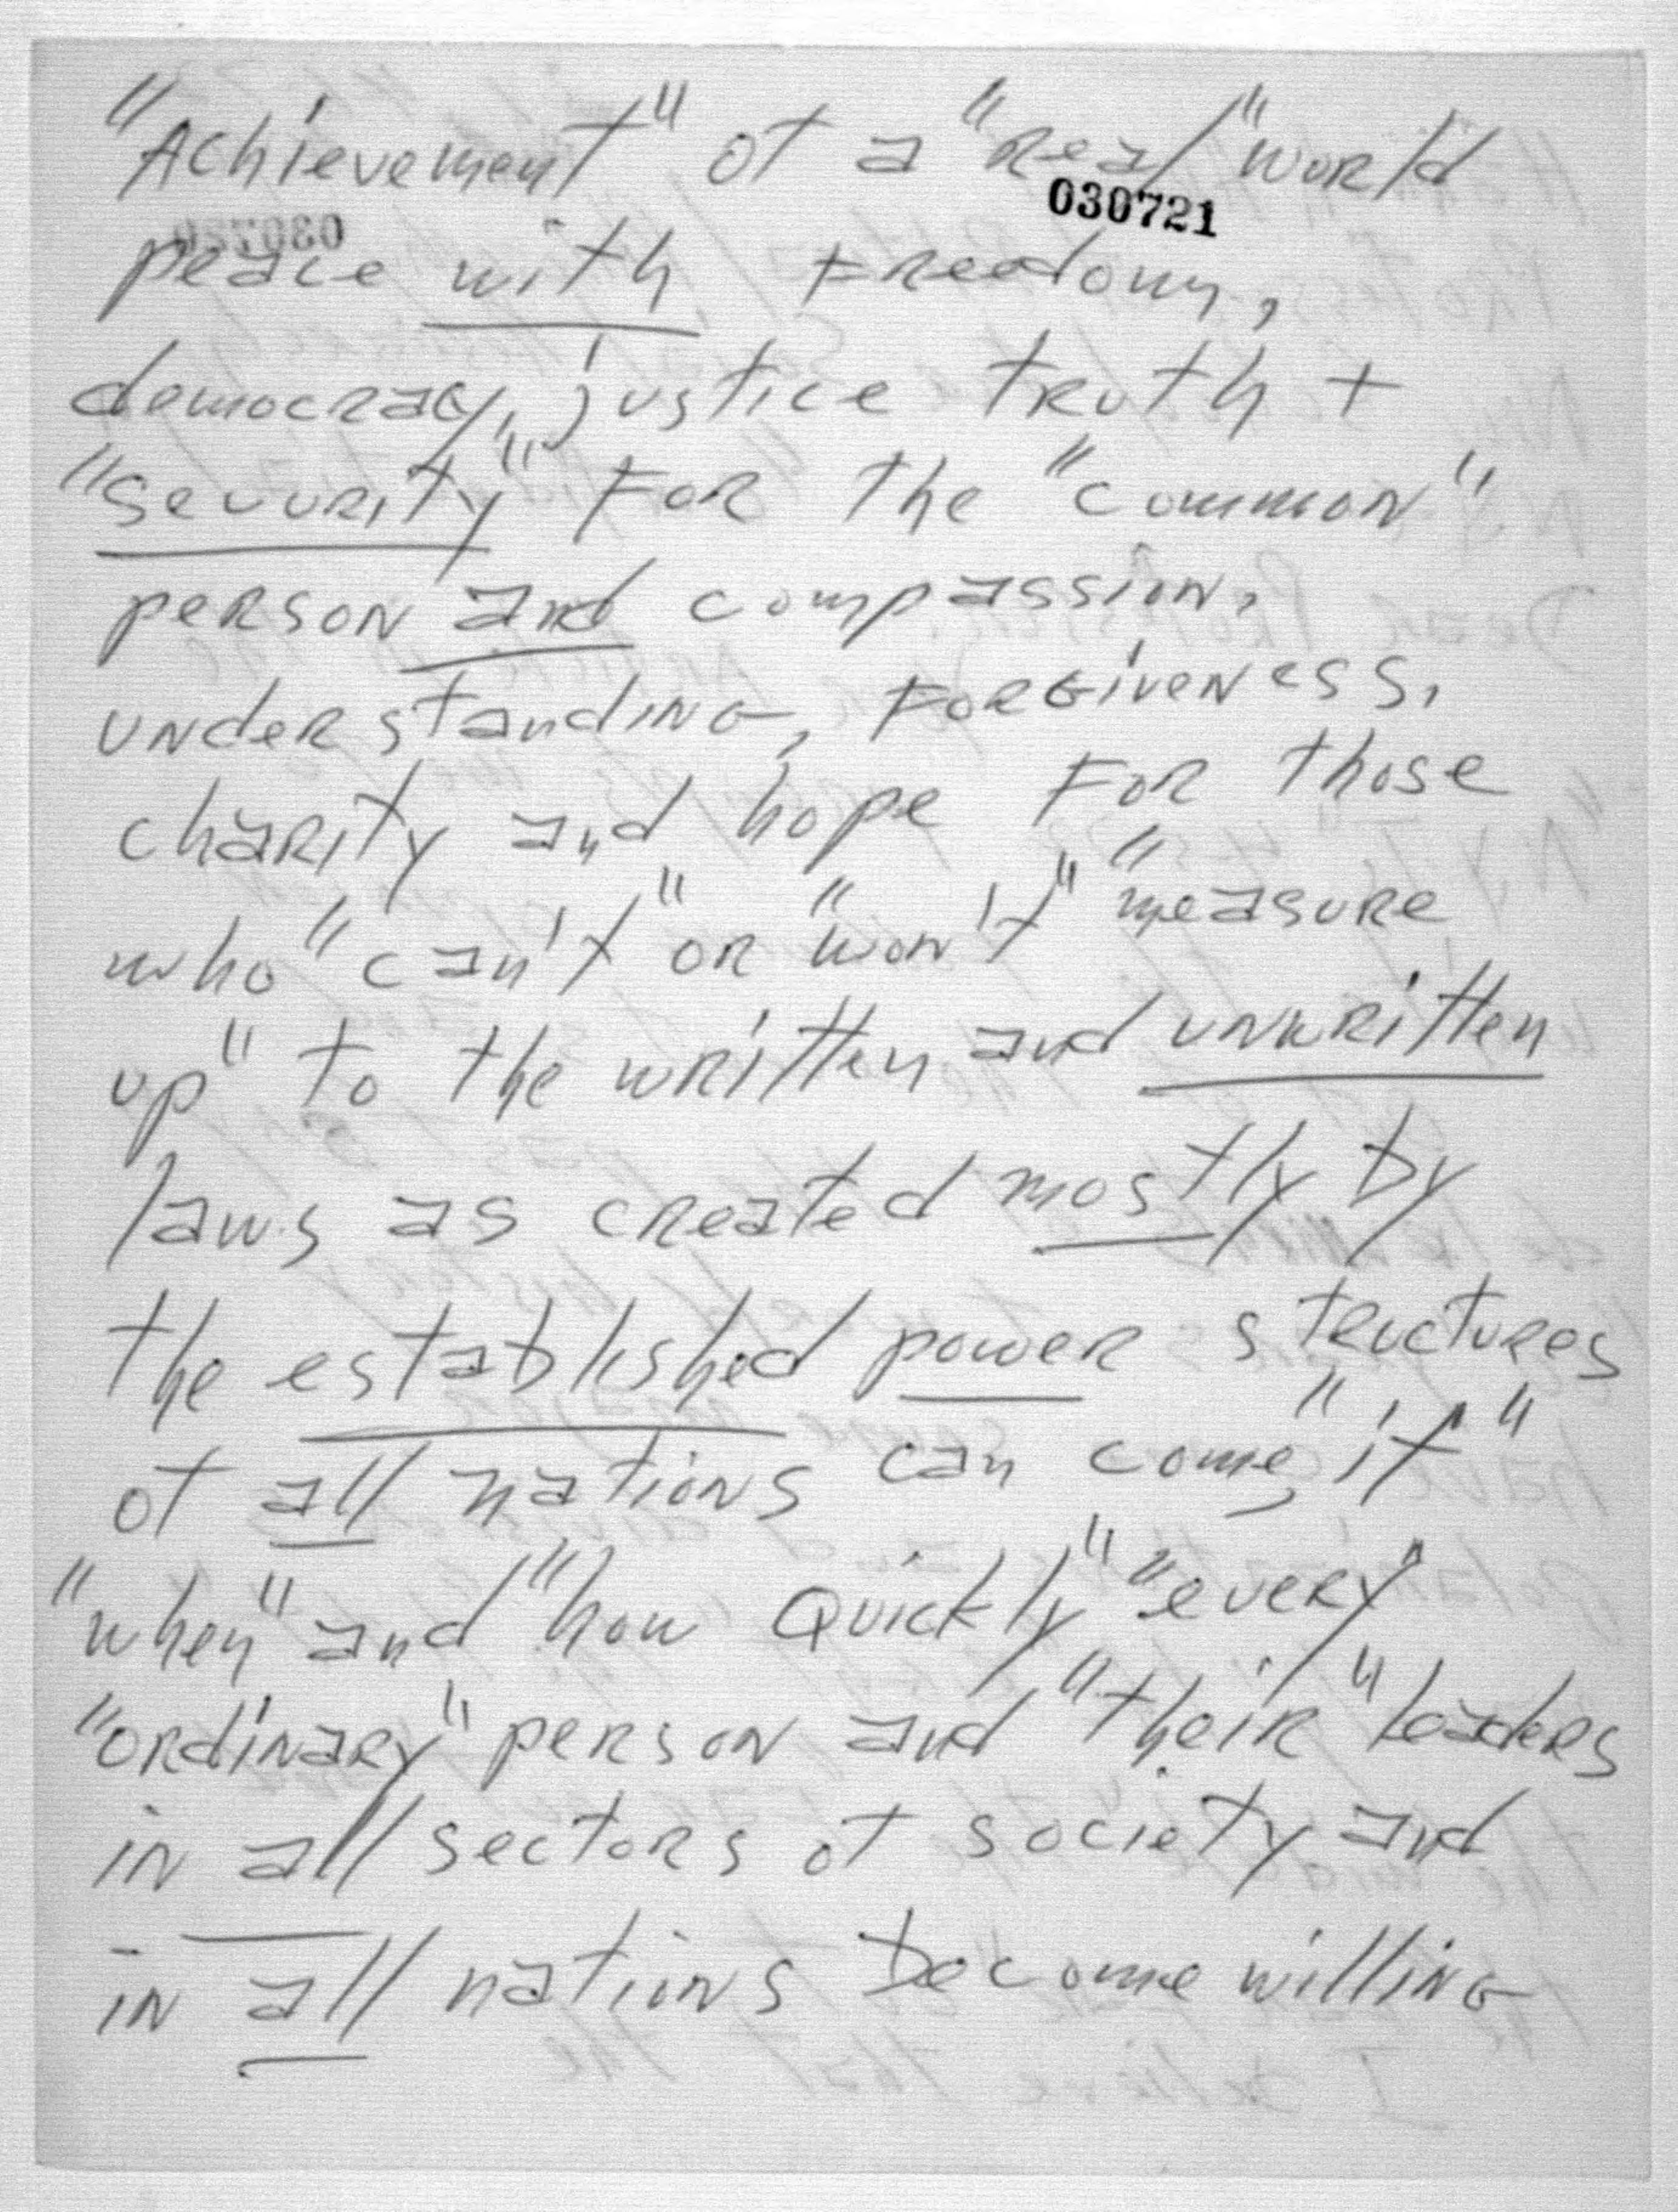 "Achievement" of a "Real" world
030721
peace with freedom,
democracy, justice truth +
"security" for the "common"
person and compassion,
understanding, forgiveness,
charity and hope for those
who "can't" or "won't" "measure
up" to the written and unwritten
laws as created mostly by
the established power structures
of all nations can come, "if"
"when" and "how quickly" "every"
"ordinary" person and "their" leaders
in all sectors of society and
in all nations become willing